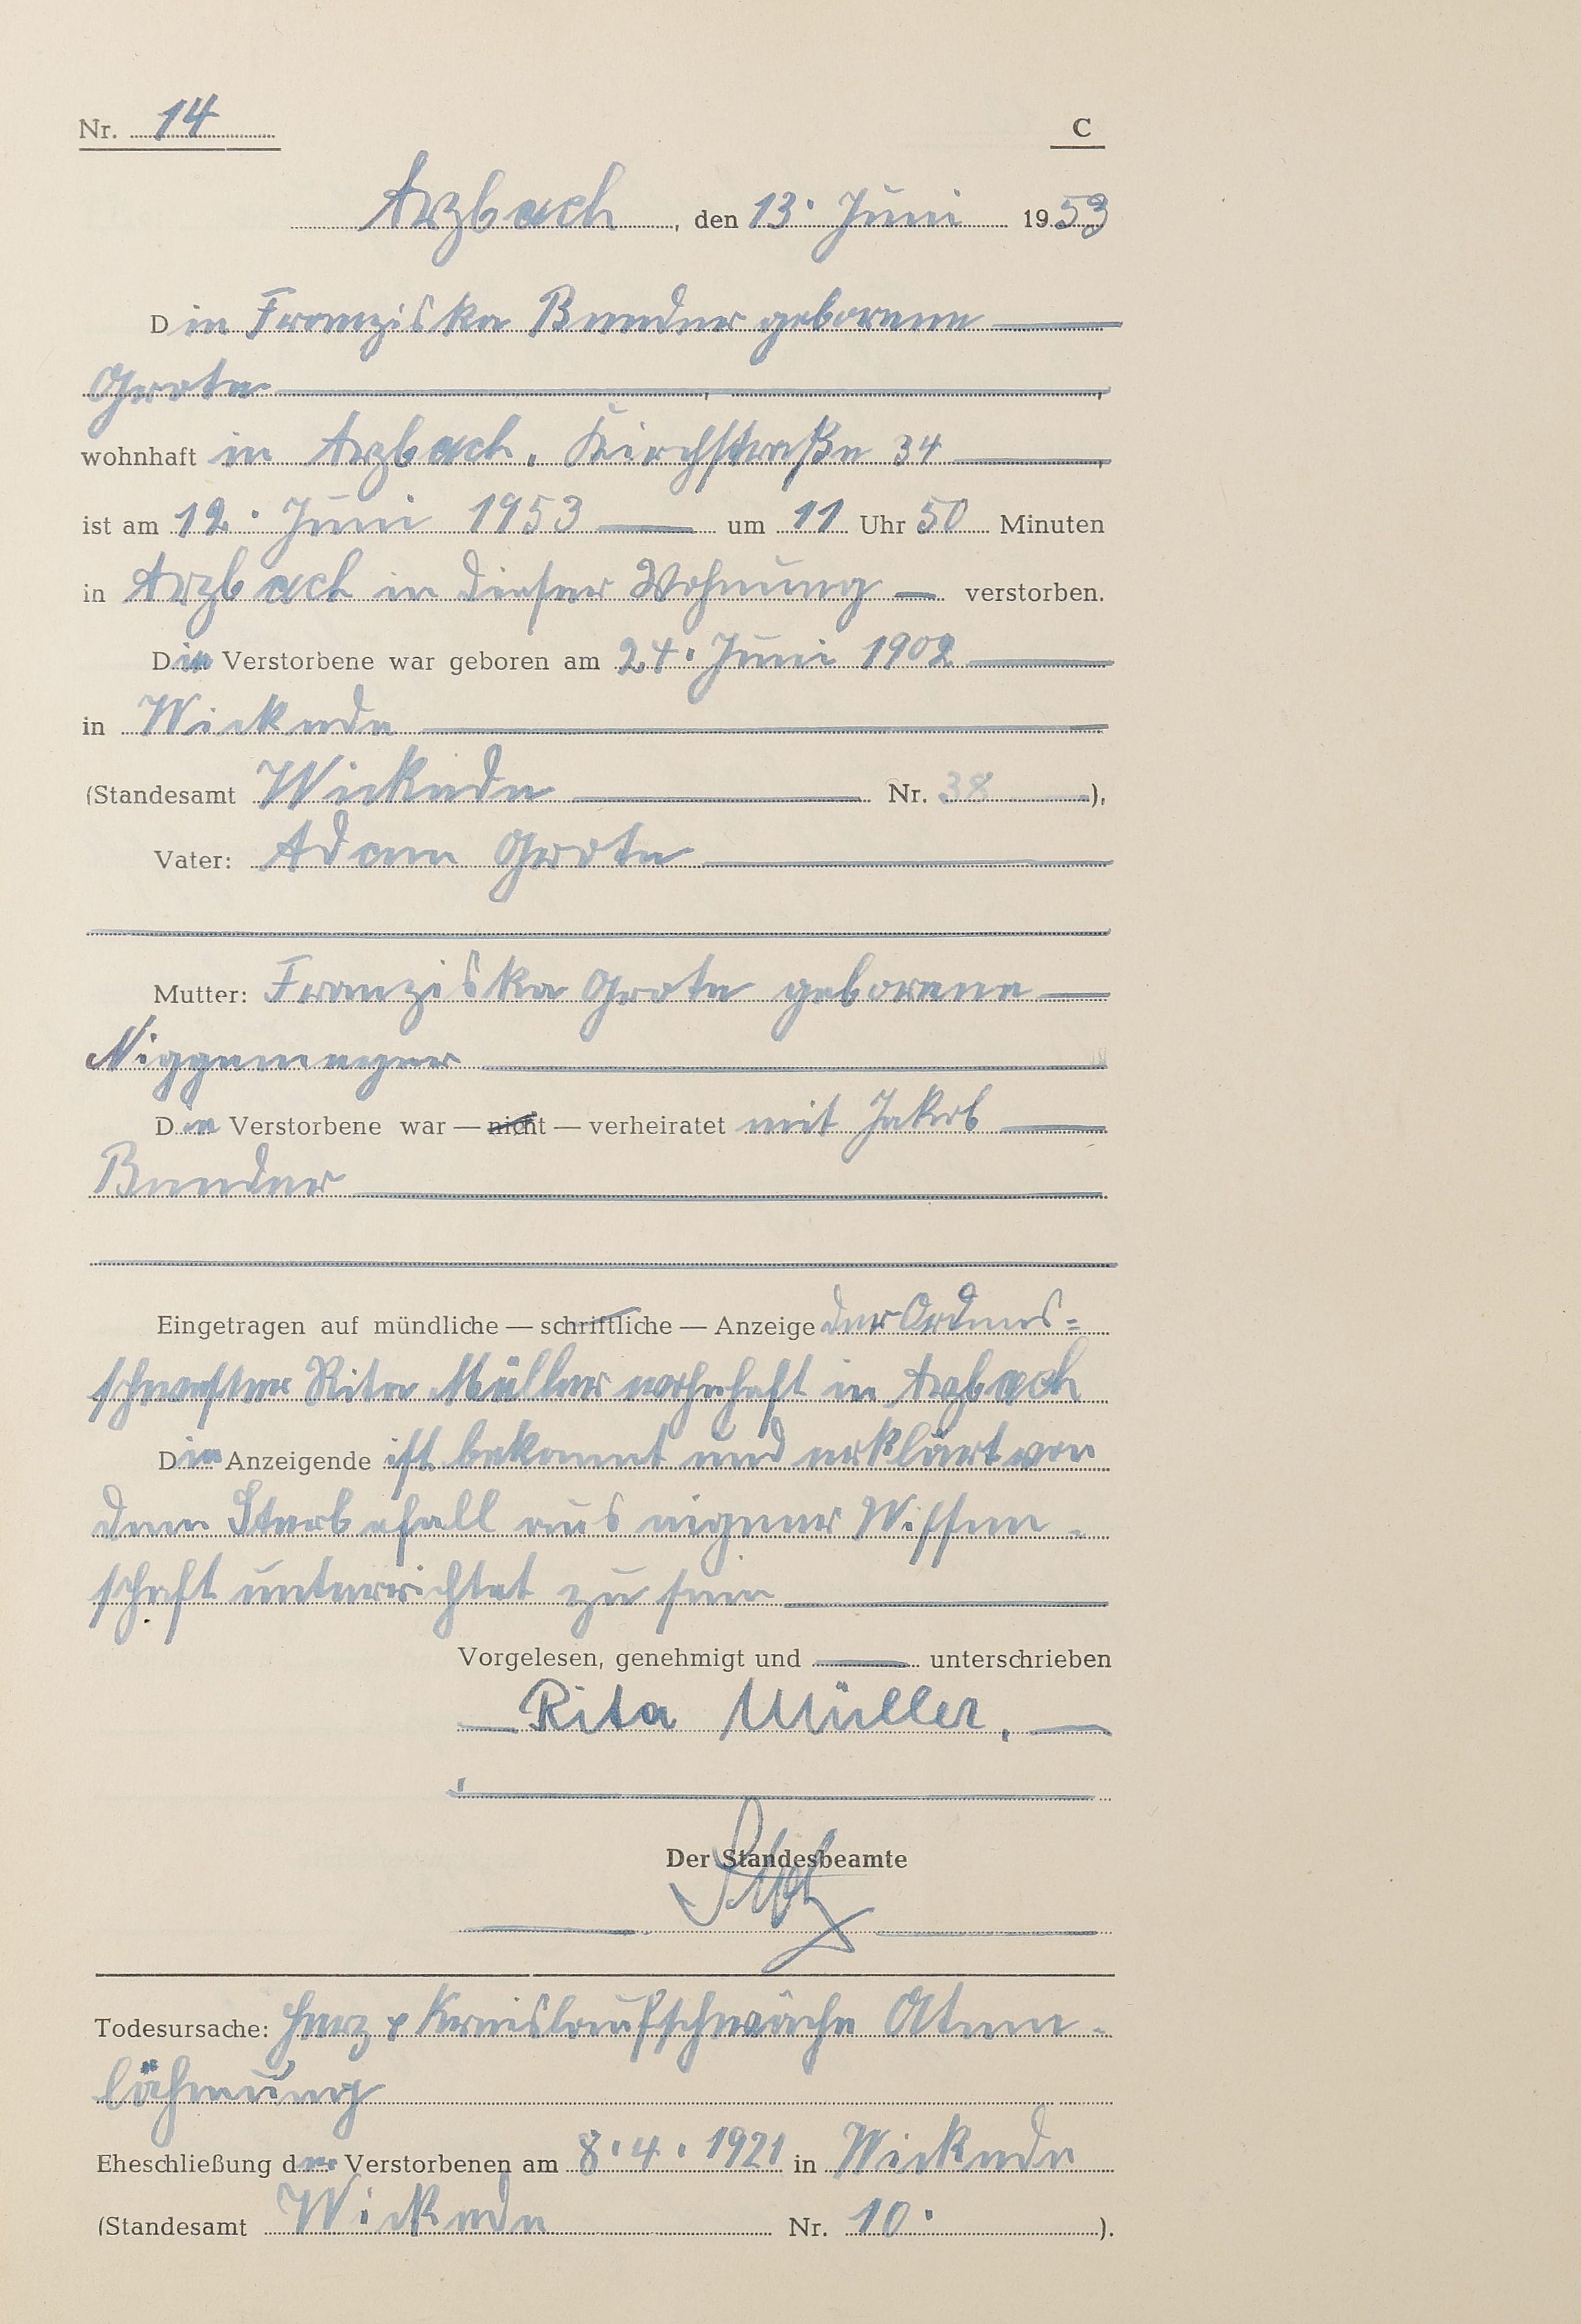 Nr. 14 C
Arzbach, den 13. Juni 1953
Die Franziska Bender geborene
Grote
wohnhaft in Arzbach, Kirchstraße 34
ist am 12. Juni 1953 um 11 Uhr 50 Minuten
in Arzbach in dieser Wohnung verstorben.
Die Verstorbene war geboren am 24. Juni 1902
in Wickede
(Standesamt Wickede Nr. 38),
Vater: Adam Grote
Mutter: Franziska Grote geborene
Niggemeyer
Die Verstorbene war — nicht — verheiratet mit Jakob
Bender
Eingetragen auf mündliche — schriftliche — Anzeige der Ordens=
schwester Rita Müller wohnhaft in Arzbach
Die Anzeigende ist bekannt und erklärt von
dem Sterbefall aus eigener Wissen-
schaft unterrichtet zu sein
Vorgelesen, genehmigt und unterschrieben
Rita Müller.
Der Standesbeamte
Todesursache: Herz & Kreislaufschwäche Atem-
lähmung
Eheschließung der Verstorbenen am 8.4.1921 in Wickede
(Standesamt Wickede Nr. 10.).